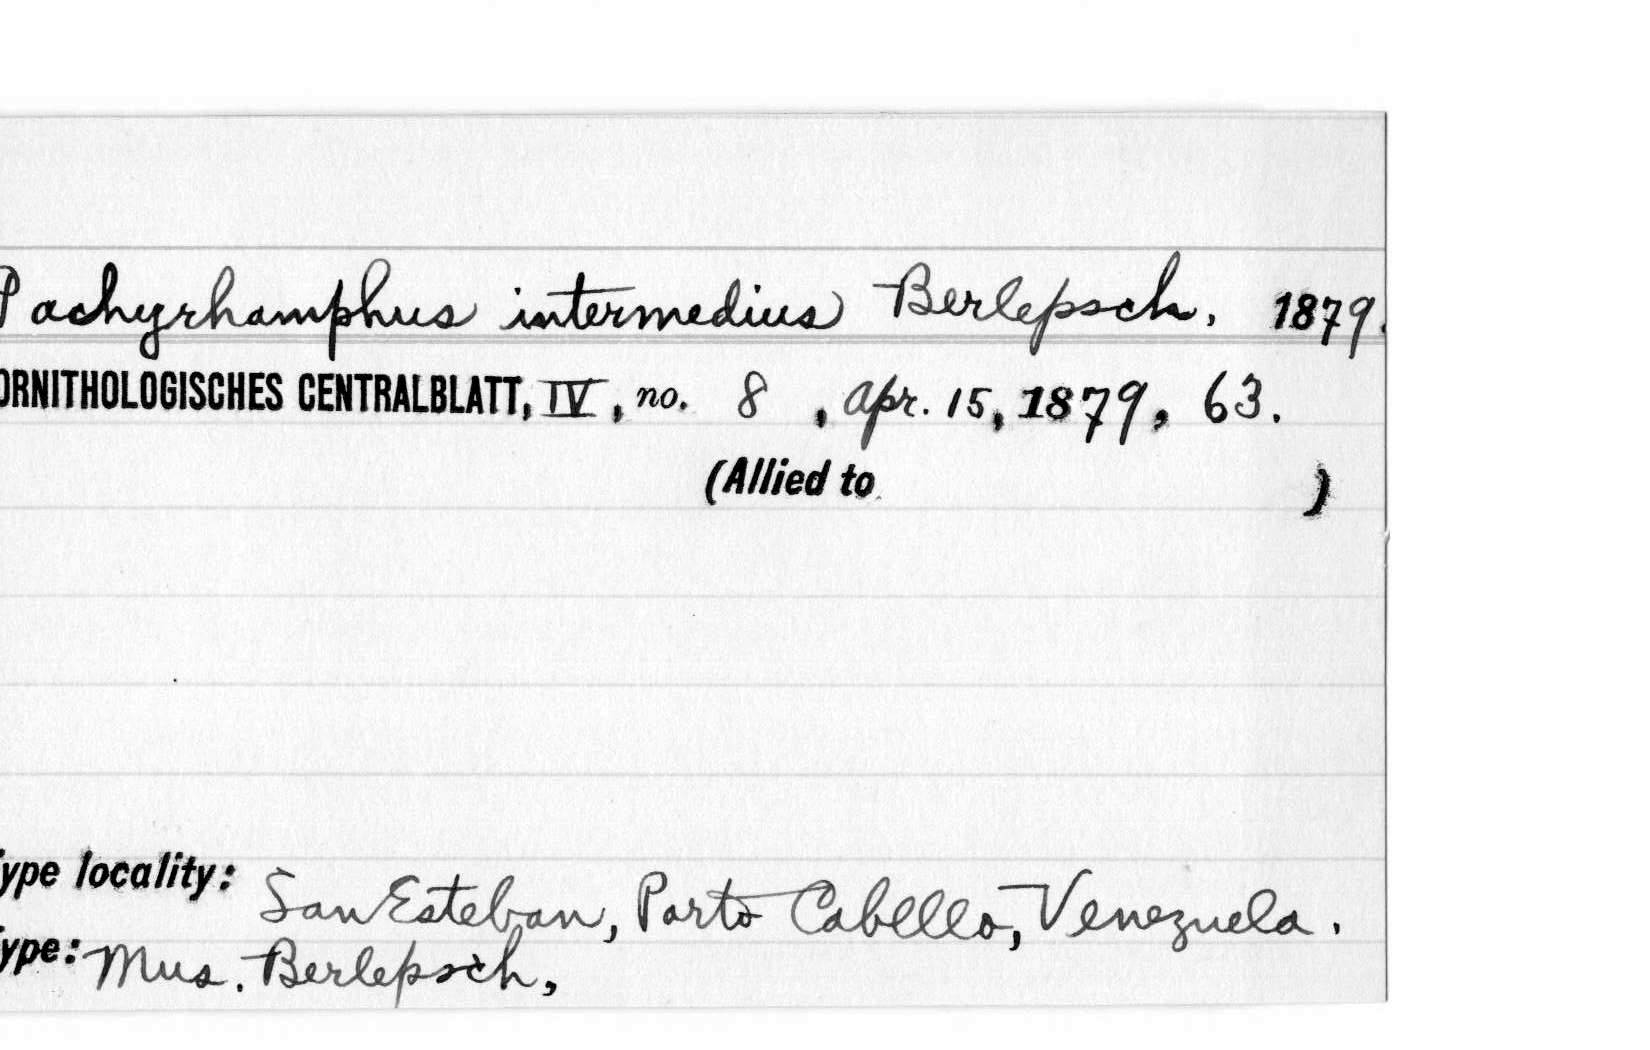 Pachyrhamphus intermedius Berlepsch, 1879.
ORNITHOLOGISCHES CENTRALBLATT, IV, no. 8, Apr. 15, 1879, 63.
(Allied to )
ype locality: San Esteban, Porto Cabello, Venezuela.
ype: Mus. Berlepsch,